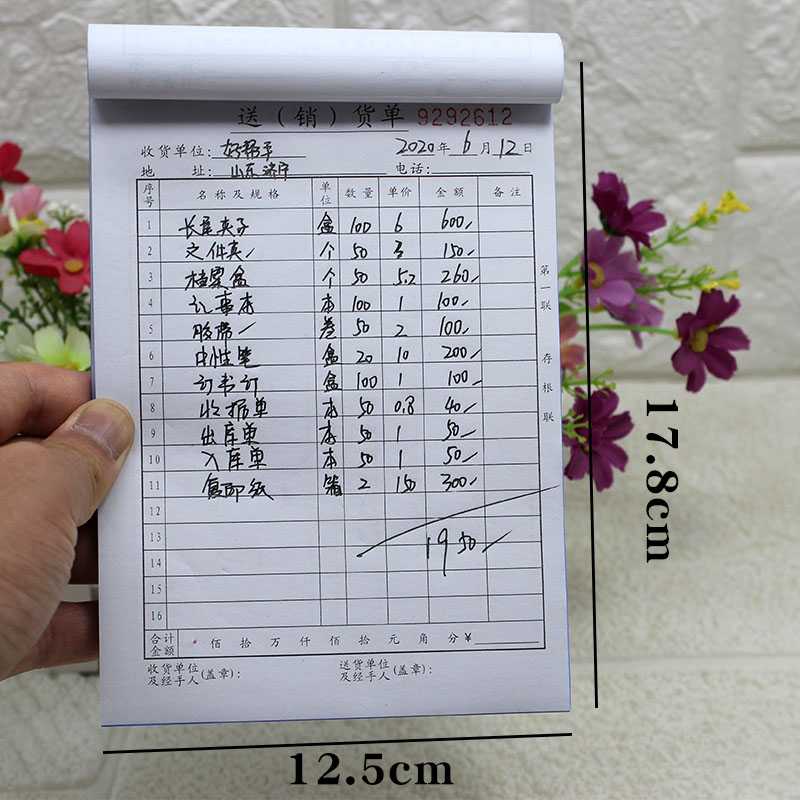 送（销）货单 9292612
收货单位：好帮手 2020年6月12日
地址：山东济宁 电话：
序号 名称及规格 单位 数量 单价 金额 备注
1 长尾夹子 盒 100 6 600
2 文件夹 个 50 3 150
3 档案盒 个 50 5.2 260
4 记事本 本 100 1 100
5 胶带 卷 50 2 100
6 中性笔 盒 20 10 200
7 订书订 盒 100 1 100
8 收据单 本 50 0.8 40
9 出库单 本 50 1 50
10 入库单 本 50 1 50
11 复印纸 箱 2 150 300
12
13 1950
14
15
16
合计金额 佰拾万仟佰拾元角分¥
收货单位及经手人(盖章)： 送货单位及经手人(盖章)：
第一联 存根联
17.8cm
12.5cm